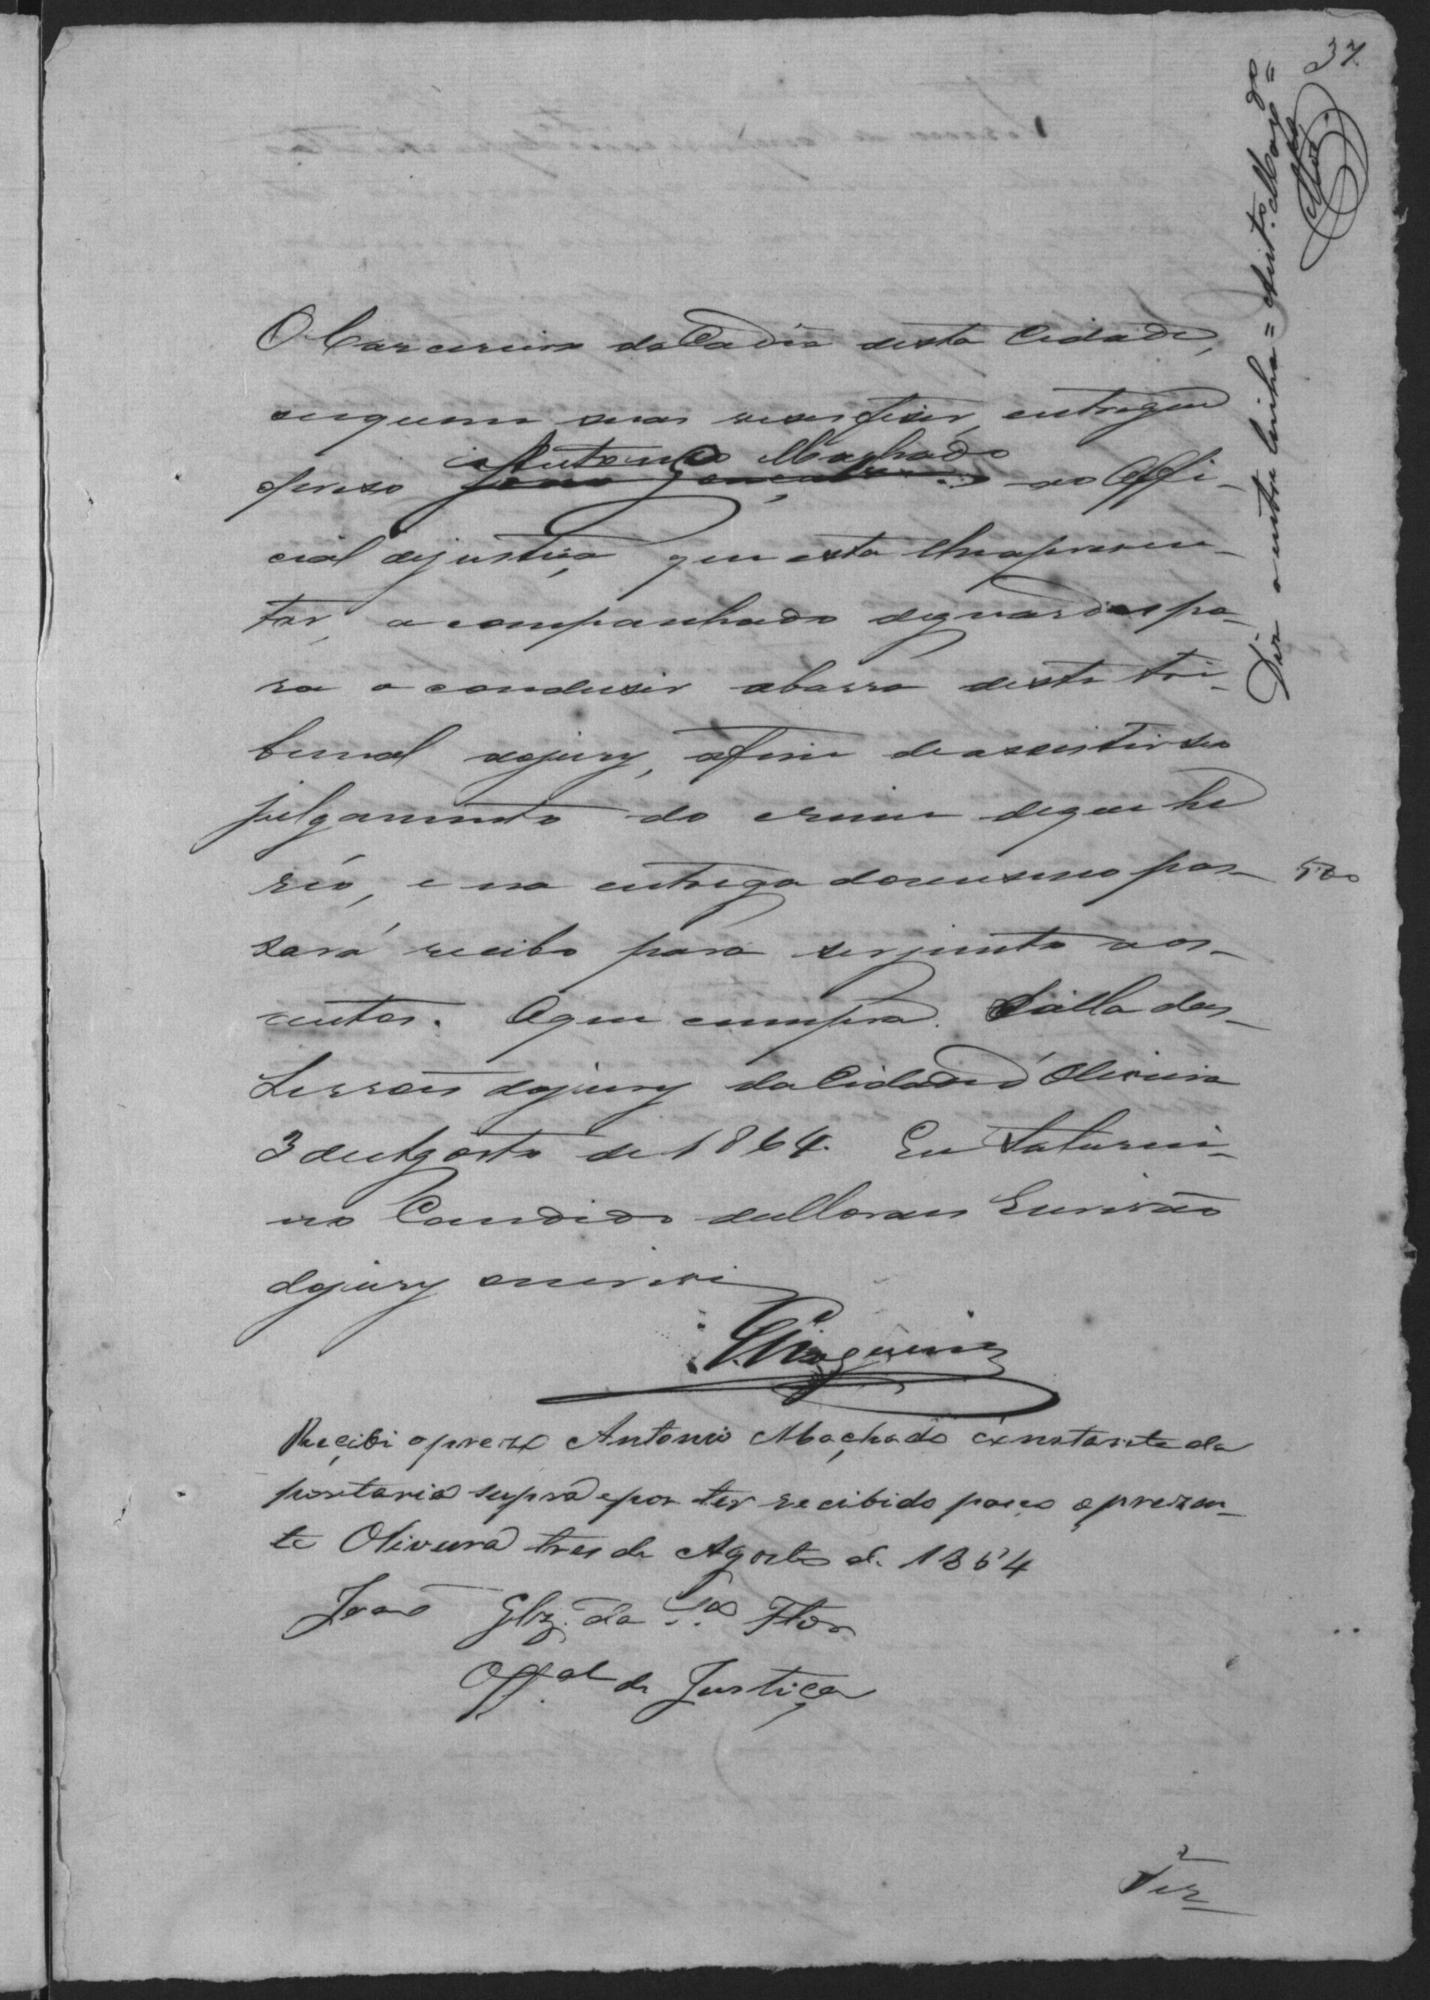 37
Diz a entre linha = Ant.º Maxado =
O Carcereiro da Cadeia desta Cidade,
em quem suas vezes fizer, entregue
Antonio Machado
o prezo João Gonçalves ao Offi-
cial de justiça que esta lhe apresen-
tar, acompanhado de guardas pa-
ra o condusir a barra deste tri-
bunal do jury, afim de assistir seo
julgamento do crime de que he
réo, e na entrega do mesmo pas-
sará recibo para ser junto aos
autos. O que cumpra. Salla das
Sessoens do jury da Cidade d'Oliveira
3 de Agosto de 1864. Eu Saturni-
no Candido de Moraes Escrivão
do jury escrevi
500
Cirqueira
Recibi o prezo Antonio Machado constante da
portaria supra e por ter recibido paço o prezen-
te Oliveira tres de Agosto de 1864
João Glz. da S.ª Flor
Off.al de Justiça
Ter